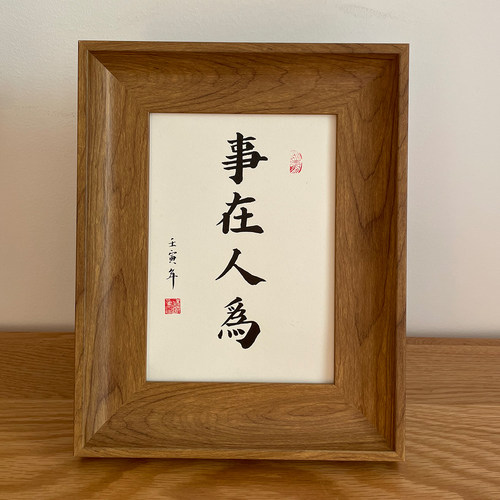 事在人為
壬寅年